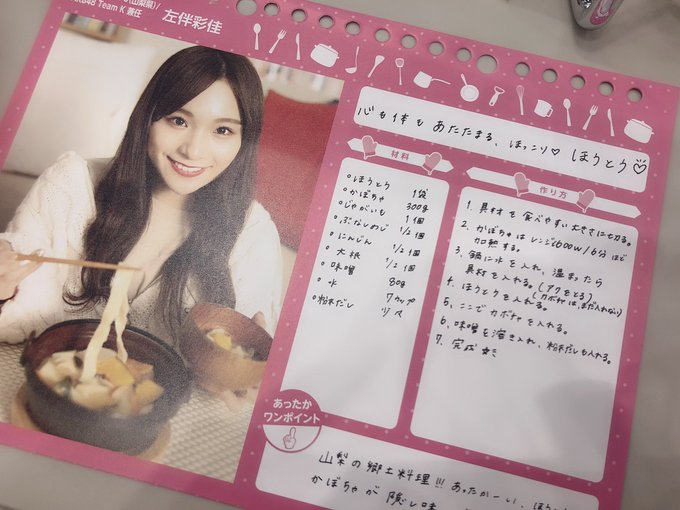 (山梨県)/
Team K 兼任
左伴彩佳
心も体もあたたまる、ほっこり♡ ほうとう♡
材料
○ほうとう 1袋
○かぼちゃ 300g
○じゃがいも 1個
○ぶなしめじ 1/2個
○にんじん 1/2個
○大根 1/2個
○味噌 80g
○水 7カップ
○粉末だし
作り方
1. 具材を食べやすい大きさに切る。
2. かぼちゃはレンジで600w/6分ほど
加熱する。
3. 鍋に水を入れ、温まったら
具材を入れる。(アクをとる)
4. ほうとうを入れる。(カボチャは、まだ入れない)
5. ここでカボチャを入れる。
6. 味噌を溶き入れ、粉末だしも入れる。
7. 完成
あったか
ワンポイント
山梨の郷土料理!!! あったかーい、
かぼちゃが 隠し味